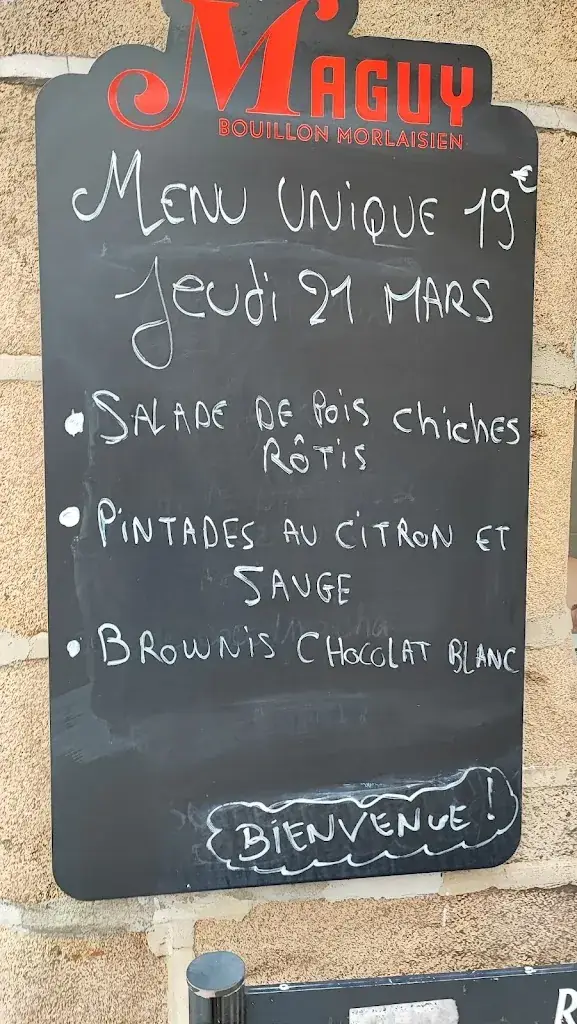 MAGUY
BOUILLON MORLAISIEN
MENU UNIQUE 19€
Jeudi 21 MARS
• SALADE DE POIS CHICHES
RÔTIS
• PINTADES AU CITRON ET
SAUGE
• BROWNIS CHOCOLAT BLANC
BIENVENUE !
R